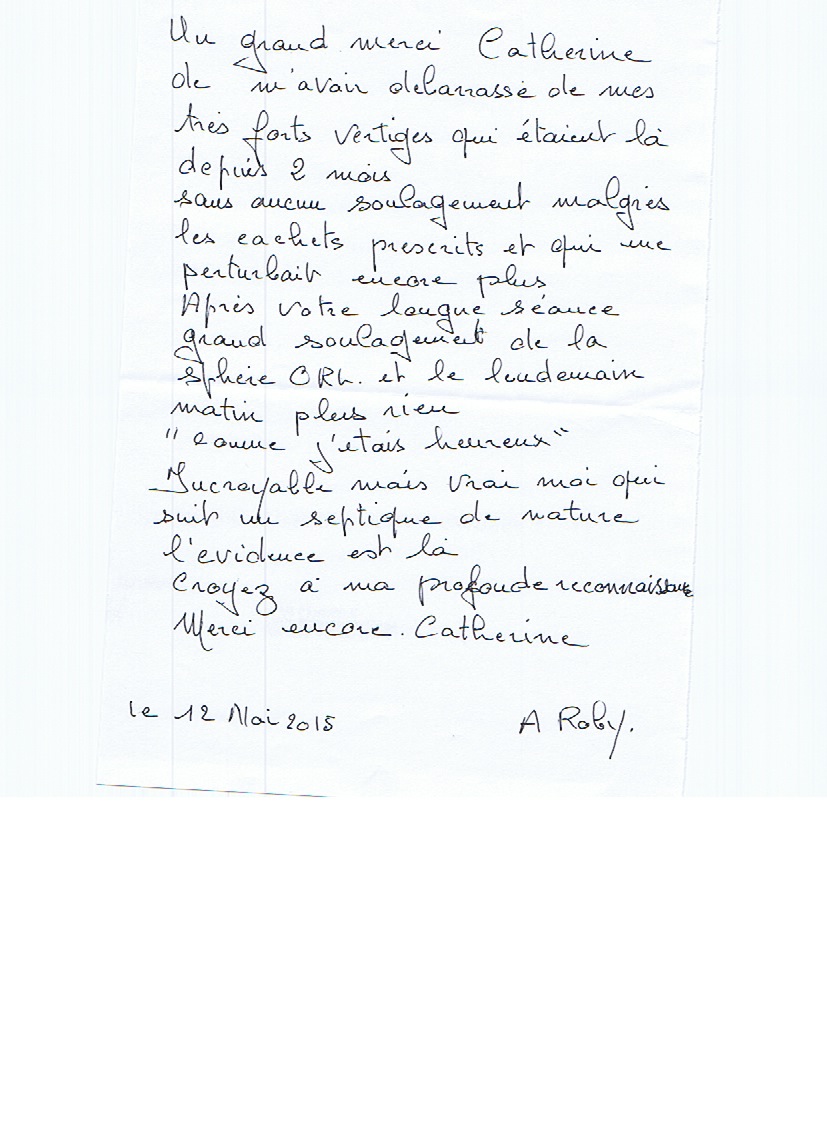 Un grand merci Catherine
de m'avoir debarrassé de mes
très forts vertiges qui étaient là
depuis 2 mois
sans aucun soulagement malgrès
les cachets prescrits et qui me
perturbait encore plus
Après votre longue séance
grand soulagement de la
sphère ORL. et le lendemain
matin plus rien
"comme j'etais heureux"
Incroyable mais vrai moi qui
suit un septique de nature
l'evidence est là
Croyez à ma profonde reconnaissance
Merci encore. Catherine
le 12 Mai 2015 A Roby.